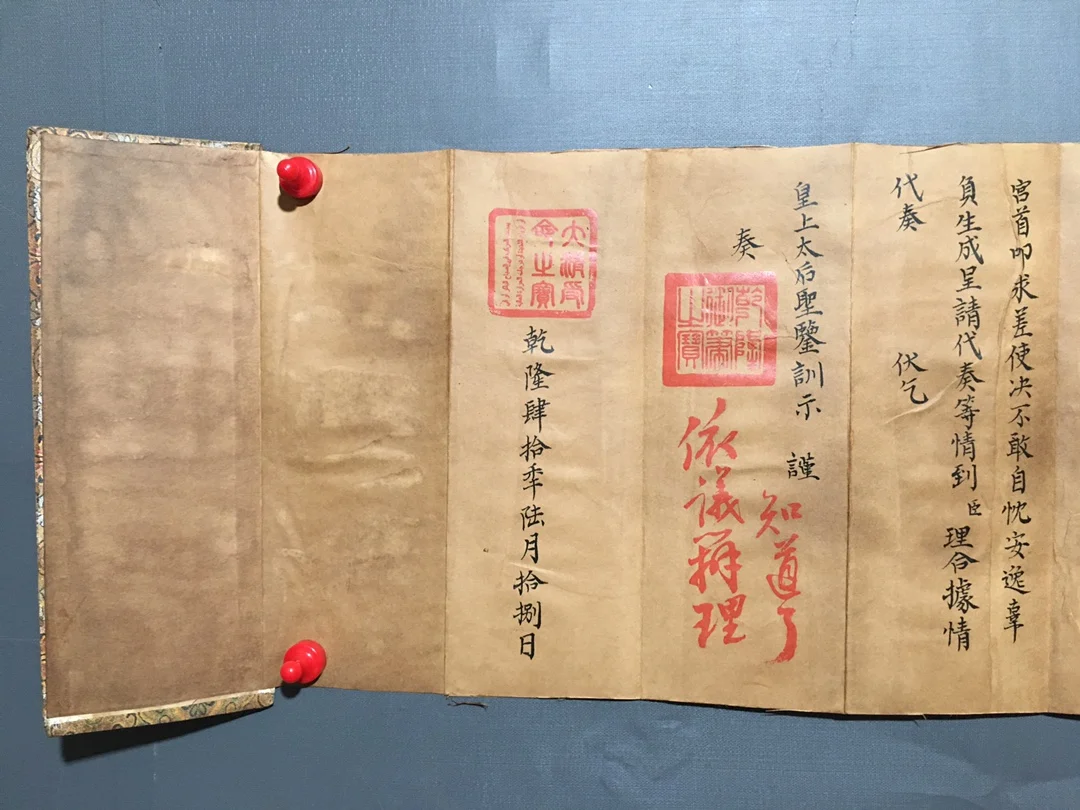 宮首叩求差使决不敢自忱安逸辜
負生成呈請代奏等情到臣理合據情
代奏 伏乞
皇上太后聖鑒訓示 謹
奏
乾隆御筆之寶
知道了
依議辦理
大清受命之寶
乾隆肆拾年陸月拾捌日